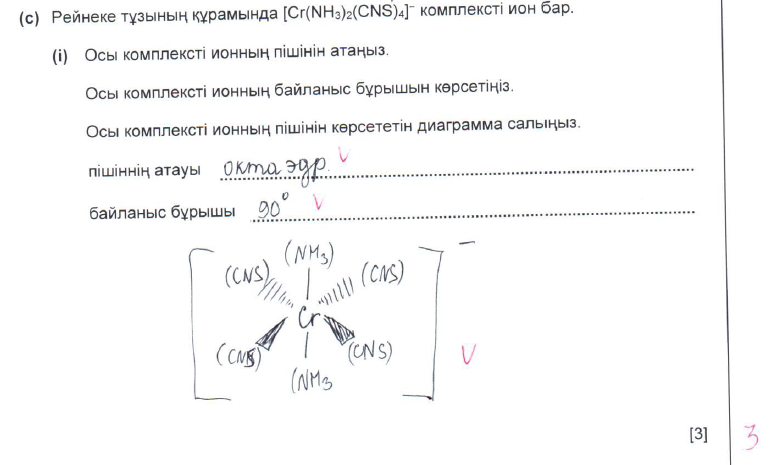 (c) Рейнеке тұзының құрамында [Cr(NH₃)₂(CNS)₄]⁻ комплексті ион бар.
(i) Осы комплексті ионның пішінін атаңыз.
Осы комплексті ионның байланыс бұрышын көрсетіңіз.
Осы комплексті ионның пішінін көрсететін диаграмма салыңыз.
пішіннің атауы октаэдр. V
байланыс бұрышы 90° V
(NH₃) –
(CNS) (CNS)
Cr
(CNS) (CNS) V
(NH₃
[3] 3